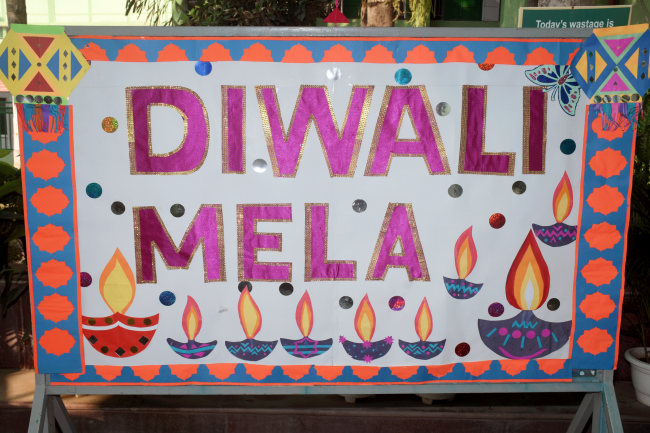 Today's wastage is
DIWALI
MELA